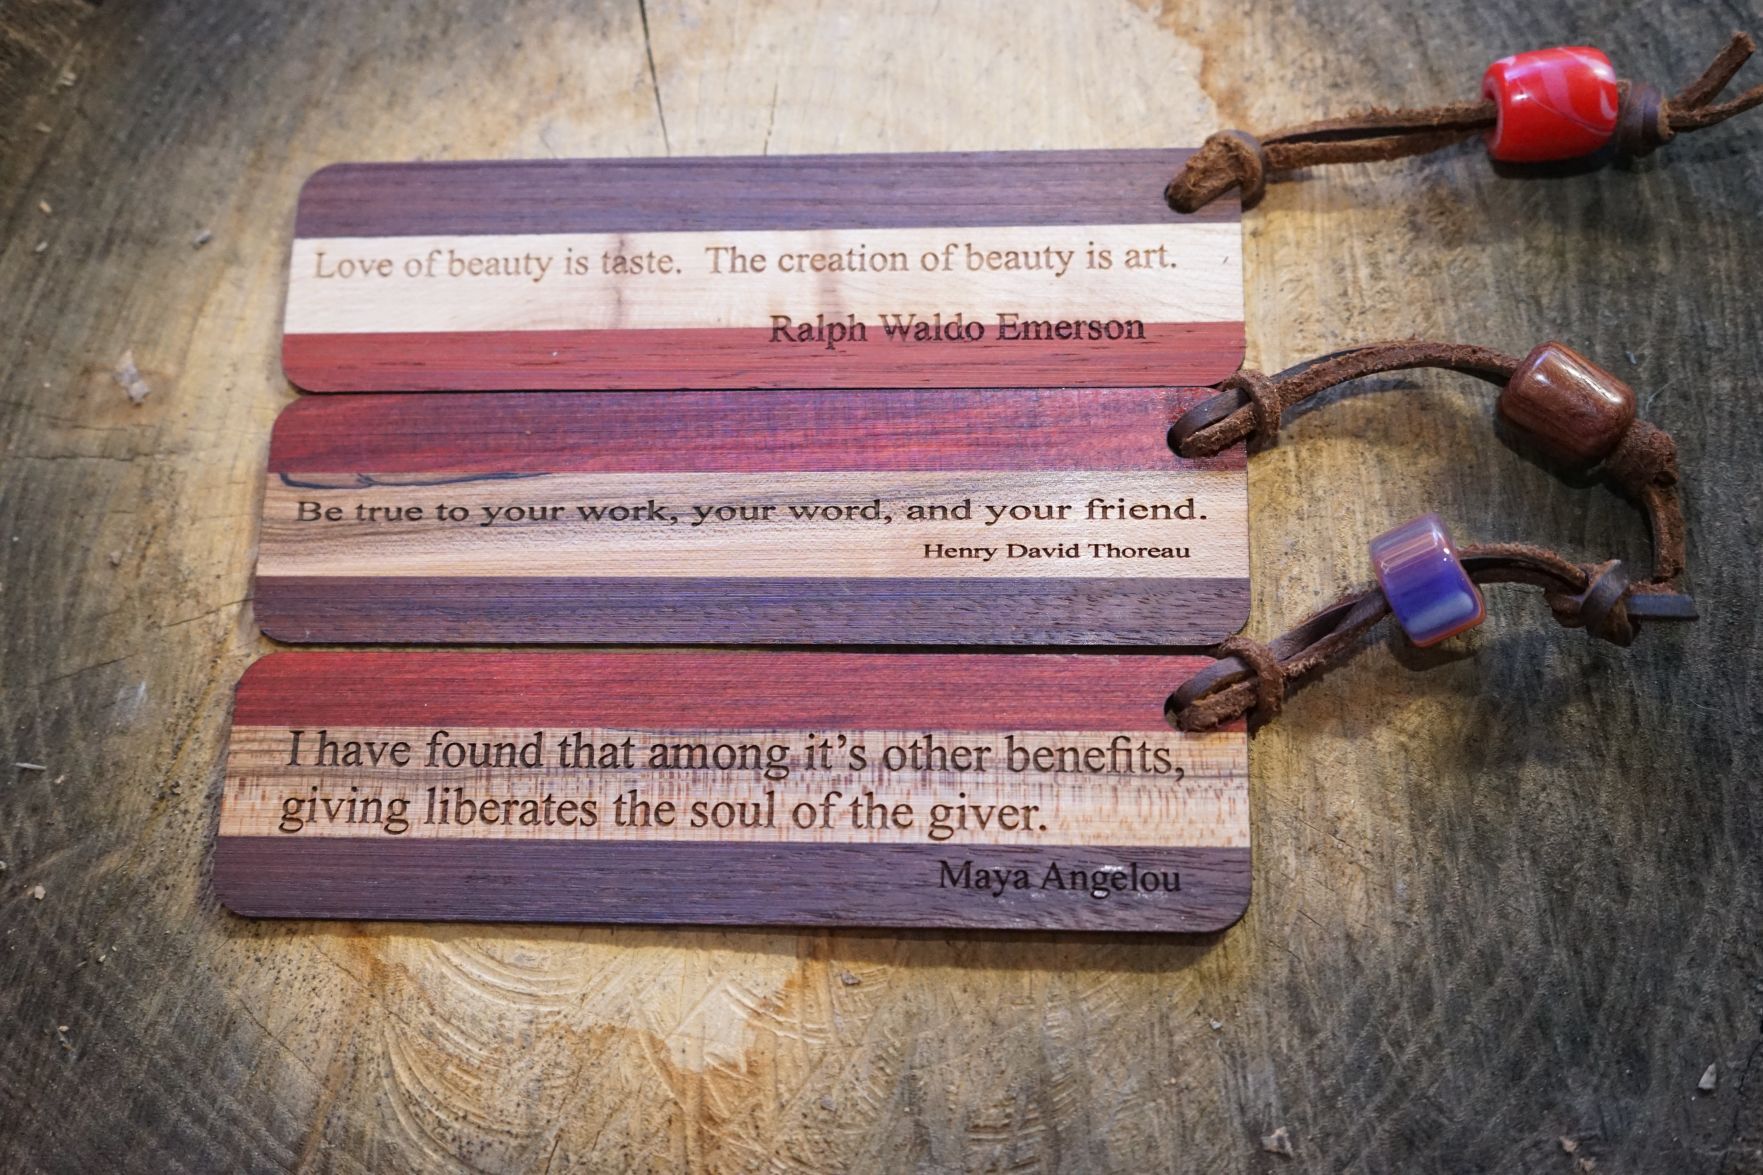 Love of beauty is taste. The creation of beauty is art.
Ralph Waldo Emerson
Be true to your work, your word, and your friend.
Henry David Thoreau
I have found that among it’s other benefits,
giving liberates the soul of the giver.
Maya Angelou